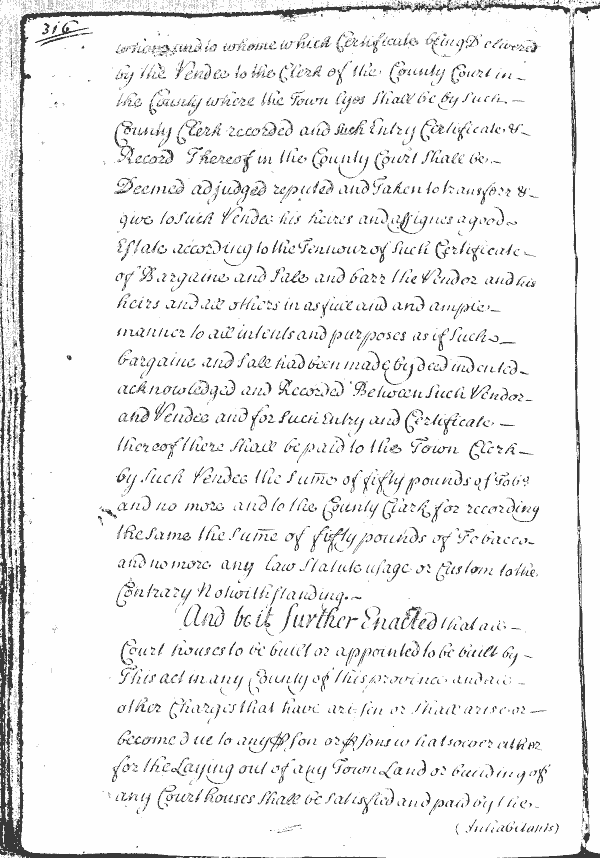 316
and to whome which Certificate being Delivered
by the Vendee to the Clerk of the County Court in
the County where the Town lyes shall be by such
County Clerk recorded and such Entry Certificate &
Record Thereof in the County Court shall be
Deemed adjudged reputed and Taken to transferr &
give to such Vendee his heires and assignes a good
Estate according to the Tennour of such Certificate
of Bargaine and Sale and barr the Vendor and his
heirs and all others in as full and and ample
manner to all intents and purposes as if such
bargaine and Sale had been made by deed indented
acknowledged and Recorded Between such Vendor
and Vendee and for such Entry and Certificate
thereof there shall be paid to the Town Clerk
by such Vendee the sume of fifty pounds of Tob:o
and no more and to the County Clark for recording
the same the sum̅e of fifty pounds of Tobacco
and no more any law Statute usage or Custom to the
Contrary Notwithstanding.
And be it further Enacted that all
Court houses to be built or appointed to be built by
This act in any County of this province and all
other Charges that have arisen or shall arise or
become due to any ꝑson or ꝑsons whatsoever either
for the Laying out of any Town Land or building of
any Court houses shall be satisfied and paid by the
(Inhabitants)